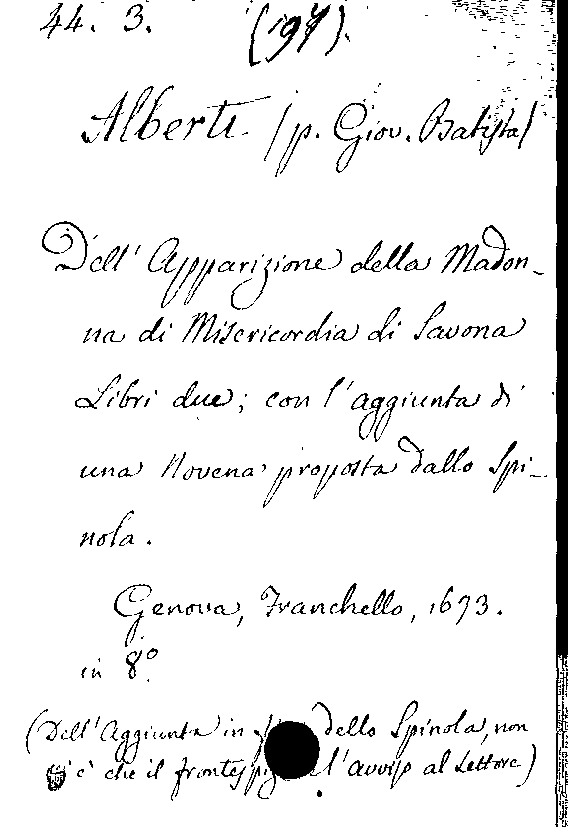 44. 3. (197).
Alberti (p. Giov. Batista)
Dell' Apparizione della Madon-
na di Misericordia di Savona
Libri due; con l'aggiunta di
una Novena proposta dallo Spi-
nola.
Genova, Franchello, 1673.
in 8°.
(Dell' Aggiunta in dello Spinola, non
c'è che il l'avviso al Lettore)